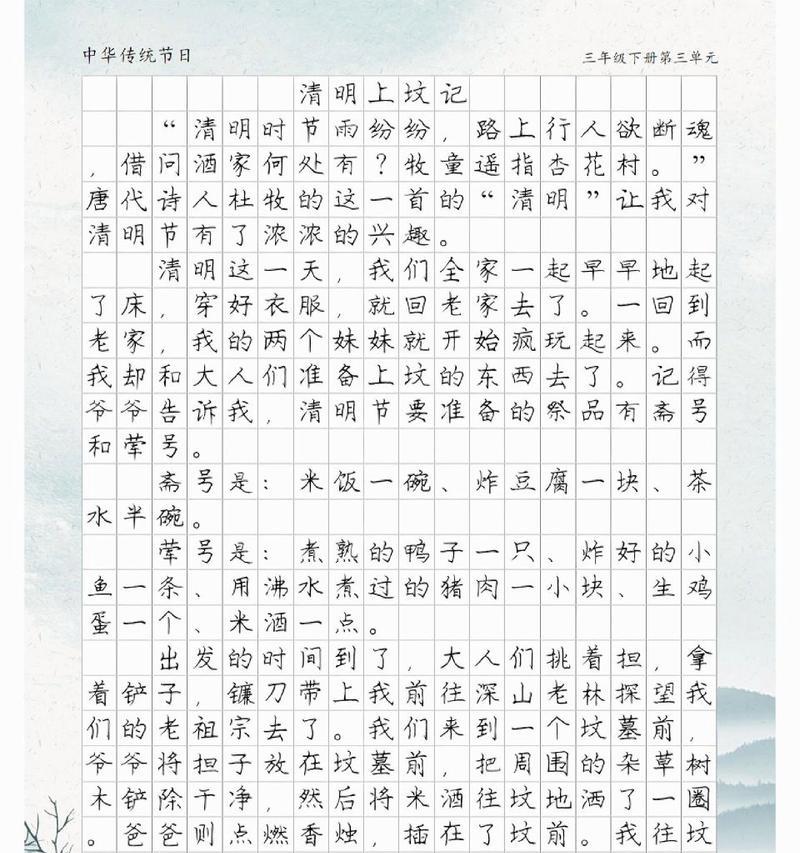 中华传统节日
三年级下册第三单元
清明上坟记
“清明时节雨纷纷，路上行人欲断魂
，借问酒家何处有？牧童遥指杏花村。”
唐代诗人杜牧的这一首的“清明”让我对
清明节有了浓浓的兴趣。
清明这一天，我们全家一起早早地起
了床，穿好衣服，就回老家去了。一回到
老家，我的两个妹妹就开始疯玩起来。而
我却和大人们准备上坟的东西去了。记得
爷爷告诉我，清明节要准备的祭品有斋号
和荤号。
斋号是：米饭一碗、炸豆腐一块、茶
水半碗。
荤号是：煮熟的鸭子一只、炸好的小
鱼一条、用沸水煮过的猪肉一小块、生鸡
蛋一个、米酒一点。
出发的时间到了，大人们挑着担，拿
着铲子，镰刀带上我前往深山老林探望我
们的老祖宗去了。我们来到一个坟墓前，
爷爷将担子放在坟墓前，把周围的杂草树
木铲除干净，然后将米酒往坟地洒了一圈
。爸爸则点燃香烛，插在了坟前。我往坟